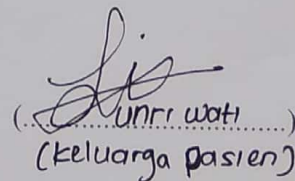 (Yunri wati)
(keluarga pasien)